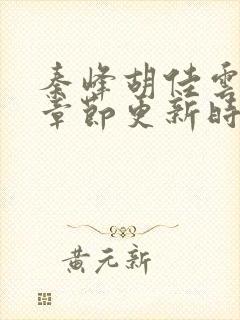 秦峰胡佳雲
章節更新時
黃元新